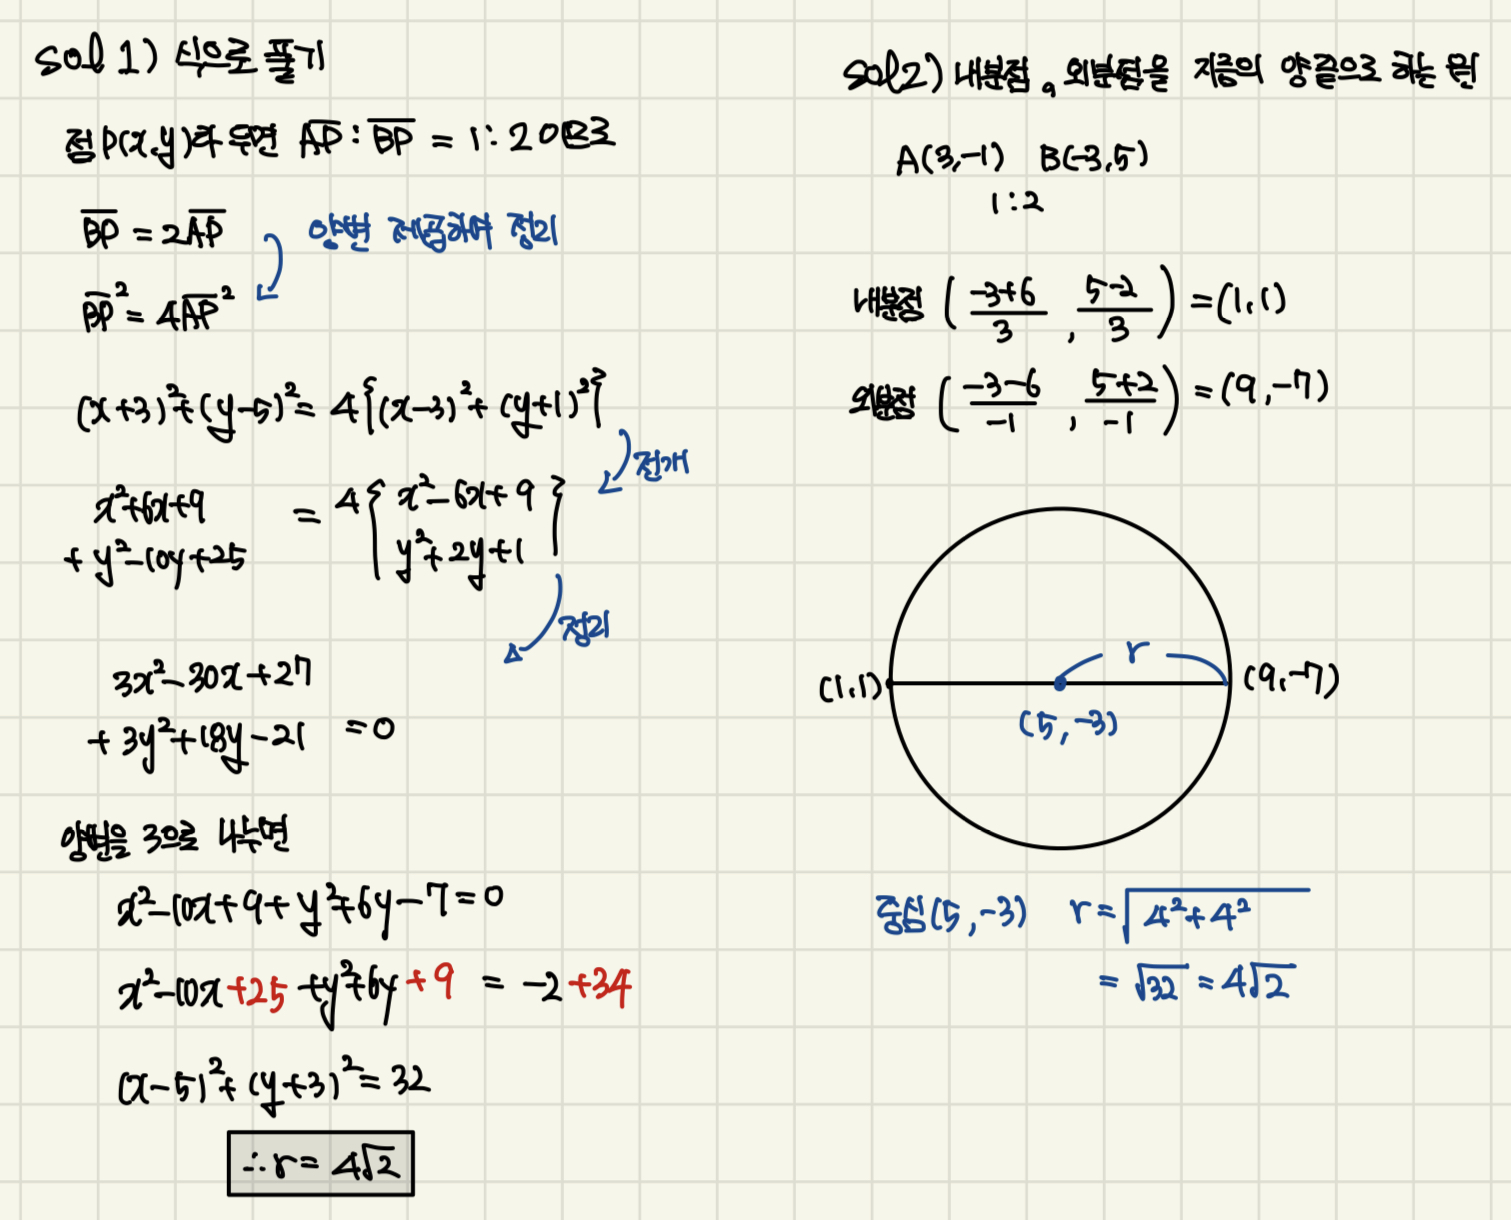 sol 1) 식으로 풀기
점 P(x,y)라 두면 AP : BP = 1:2 이므로
BP = 2AP
양변 제곱하여 정리
BP² = 4AP²
(x+3)²+(y-5)² = 4{(x-3)²+(y+1)²}
전개
x²+6x+9
+ y²-10y+25
= 4{ x²-6x+9
y²+2y+1 }
정리
3x²-30x+27
+ 3y²+18y-21 = 0
양변을 3으로 나누면
x²-10x+9+y²+6y-7=0
x²-10x+25+y²+6y+9 = -2+34
(x-5)²+(y+3)²=32
∴ r = 4√2
sol2) 내분점, 외분점을 지름의 양끝으로 하는 원
A(3,-1) B(-3,5)
1:2
내분점 (-3+6/3, 5-2/3) = (1,1)
외분점 (-3-6/-1, 5+2/-1) = (9,-7)
r
(1,1)
(9,-7)
(5,-3)
중심(5,-3) r=√4²+4²
= √32 = 4√2